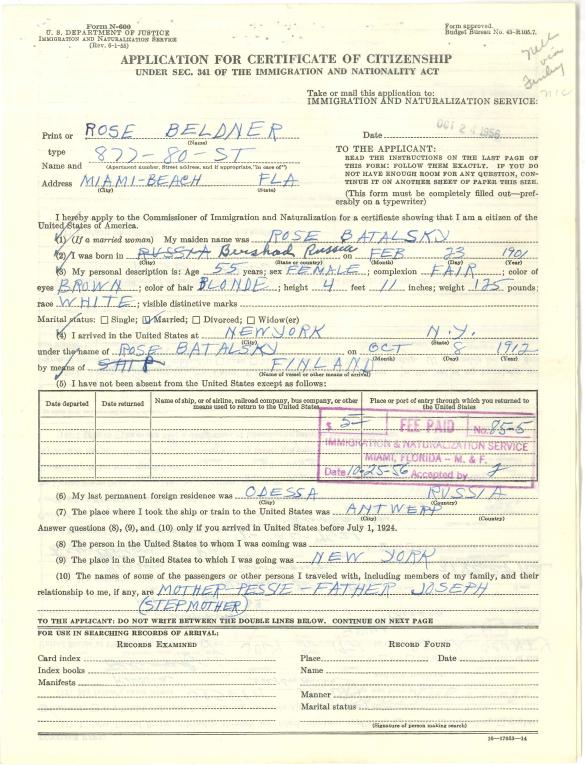 Form N-600
U. S. DEPARTMENT OF JUSTICE
IMMIGRATION AND NATURALIZATION SERVICE
(Rev. 6-1-55)
Form approved.
Budget Bureau No. 43-R105.7.
APPLICATION FOR CERTIFICATE OF CITIZENSHIP
UNDER SEC. 341 OF THE IMMIGRATION AND NATIONALITY ACT
Take or mail this application to:
IMMIGRATION AND NATURALIZATION SERVICE:
Print or ROSE BELDNER
(Name)
Date OCT 24 1956
type 877-80-ST
Name and (Apartment number, Street address, and if appropriate, "in care of")
Address MIAMI-BEACH FLA
(City) (State)
TO THE APPLICANT:
READ THE INSTRUCTIONS ON THE LAST PAGE OF
THIS FORM: FOLLOW THEM EXACTLY. IF YOU DO
NOT HAVE ENOUGH ROOM FOR ANY QUESTION, CON-
TINUE IT ON ANOTHER SHEET OF PAPER THIS SIZE.
(This form must be completely filled out—pref-
erably on a typewriter)
I hereby apply to the Commissioner of Immigration and Naturalization for a certificate showing that I am a citizen of the
United States of America.
(1) (If a married woman) My maiden name was ROSE BATALSKY
(2) I was born in RUSSIA Bershad Russia on FEB 23 1901
(City) (State or country) (Month) (Day) (Year)
(3) My personal description is: Age 55 years; sex FEMALE; complexion FAIR; color of
eyes BROWN; color of hair BLONDE; height 4 feet 11 inches; weight 125 pounds;
race WHITE; visible distinctive marks
Marital status: Single; Married; Divorced; Widow(er)
(4) I arrived in the United States at NEWYORK N.Y.
(City) (State)
under the name of ROSE BATALSKY on OCT 8 1912
(Month) (Day) (Year)
by means of SHIP FINLAND
(Name of vessel or other means of arrival)
(5) I have not been absent from the United States except as follows:
Date departed Date returned Name of ship, or of airline, railroad company, bus company, or other means used to return to the United States Place or port of entry through which you returned to the United States
$ 5 FEE PAID No. 85-5
IMMIGRATION & NATURALIZATION SERVICE
MIAMI, FLORIDA – M. & F.
Date 10-25-56 Accepted by
(6) My last permanent foreign residence was ODESSA RUSSIA
(City) (Country)
(7) The place where I took the ship or train to the United States was ANTWERP
(City) (Country)
Answer questions (8), (9), and (10) only if you arrived in United States before July 1, 1924.
(8) The person in the United States to whom I was coming was
(9) The place in the United States to which I was going was NEW YORK
(10) The names of some of the passengers or other persons I traveled with, including members of my family, and their
relationship to me, if any, are MOTHER-PESSIE - FATHER JOSEPH
(STEPMOTHER)
TO THE APPLICANT: DO NOT WRITE BETWEEN THE DOUBLE LINES BELOW. CONTINUE ON NEXT PAGE
FOR USE IN SEARCHING RECORDS OF ARRIVAL:
RECORDS EXAMINED
RECORD FOUND
Card index
Place Date
Index books
Name
Manifests
Manner
Marital status
(Signature of person making search)
16—17953-14